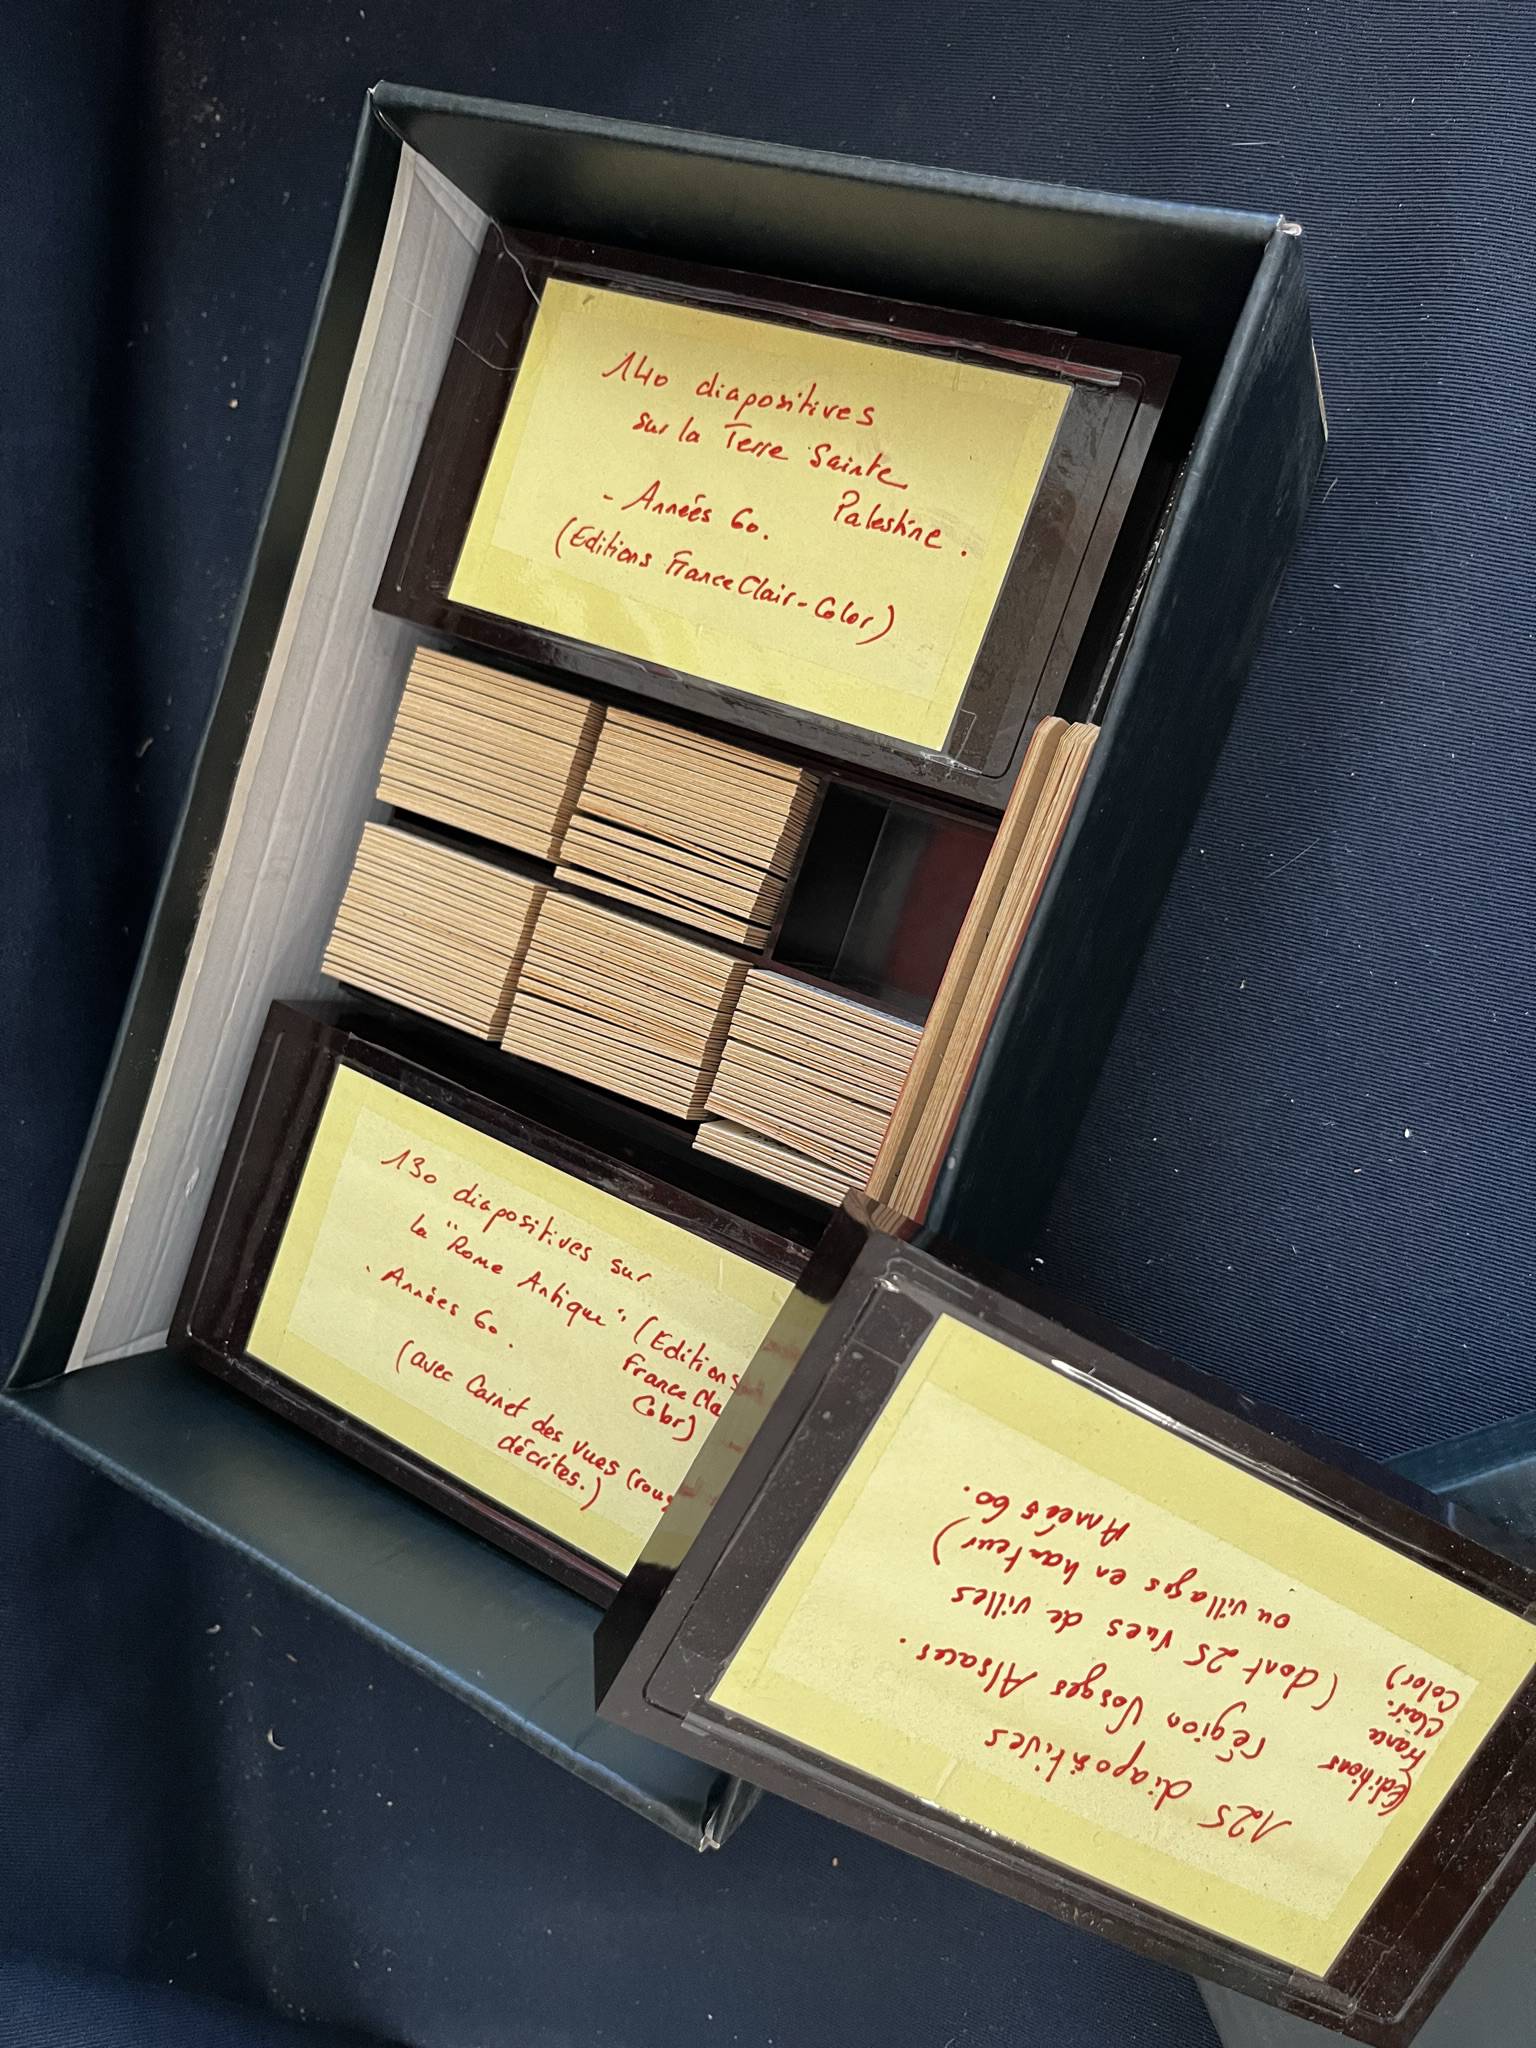 140 diapositives
sur la Terre Sainte
Palestine.
- Années 60.
(Editions FranceClair-Color)
130 diapositives sur
la "Rome Antique" (Editions
France Cla
Color)
- Années 60.
(avec Carnet des vues (roug
décrites.)
125 diapositives
région Vosges Alsaces.
(dont 25 vues de villes
ou villages en hauteur)
Années 60.
(Editions
France
Clair.
Color)